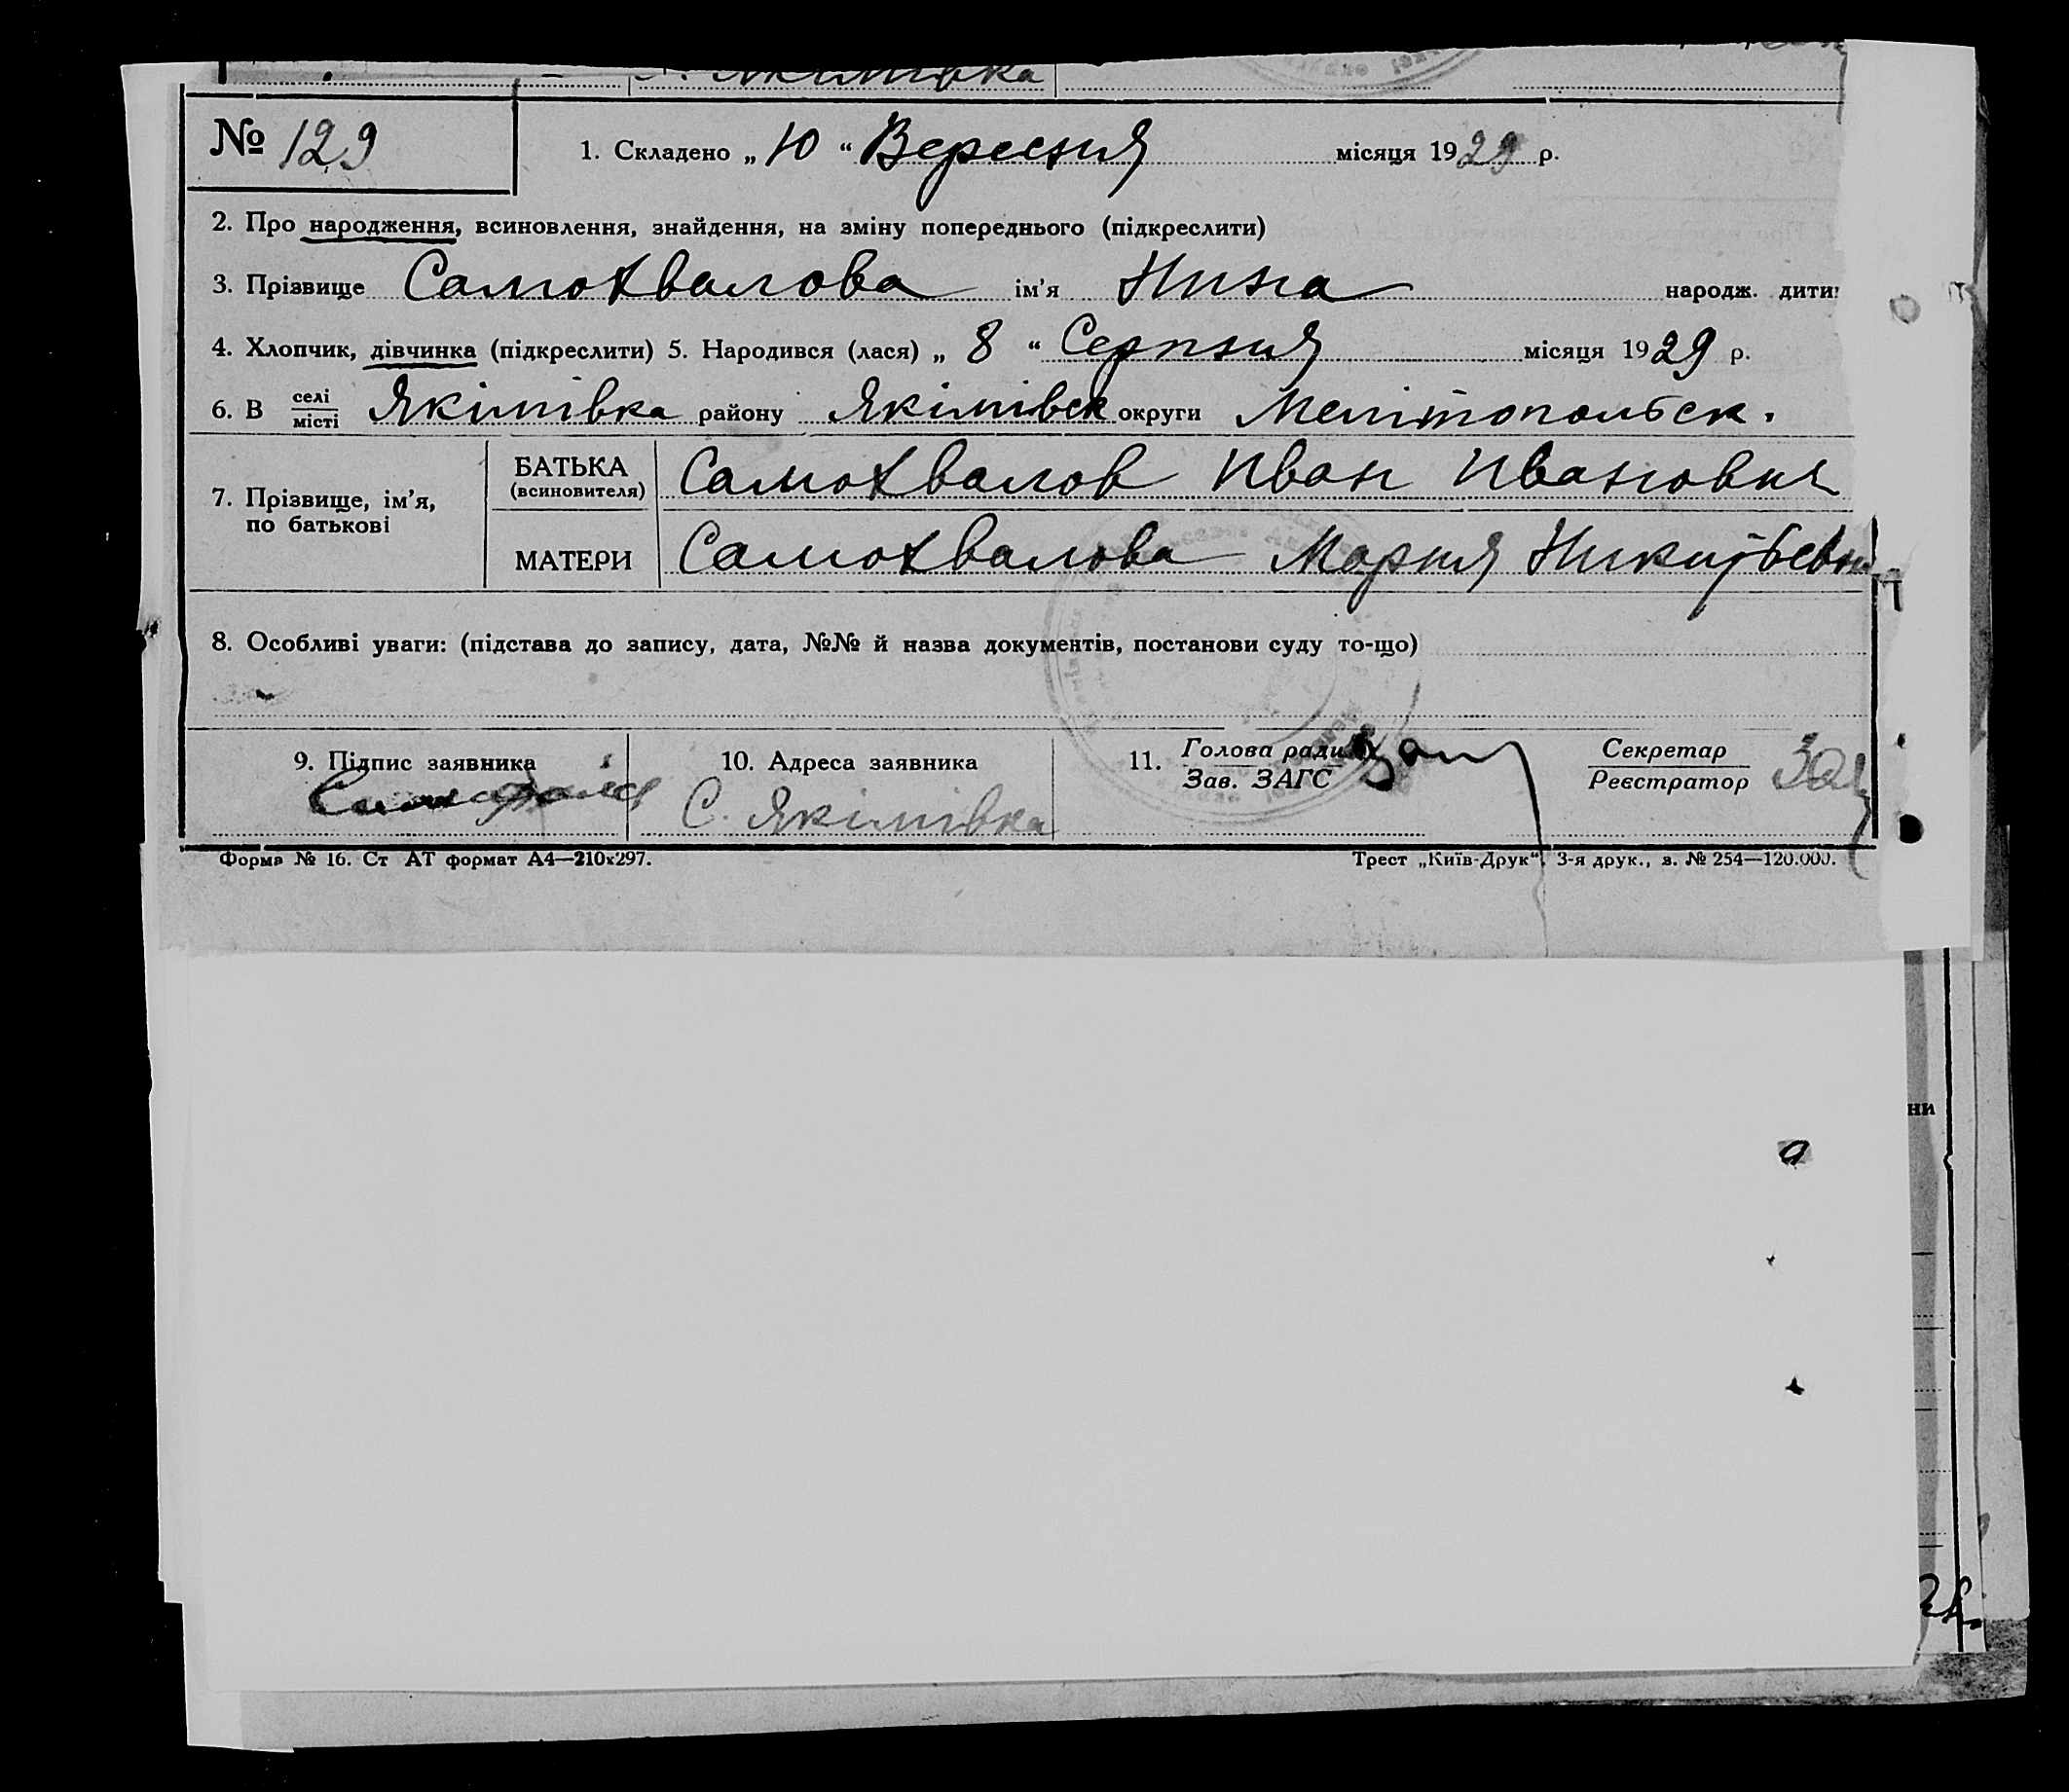 Якімівка
№ 129
1. Складено „ 10 “ Вересня місяця 1929 р.
2. Про народження, всиновлення, знайдення, на зміну попереднього (підкреслити)
3. Прізвище Самохвалова ім’я Нина народж. дити
4. Хлопчик, дівчинка (підкреслити) 5. Народився (лася) „ 8 “ Серпня місяця 1929 р.
6. В селі місті Якімівка району Якімівск округи Мелітопольск.
7. Прізвище, ім’я, по батькові
БАТЬКА (всиновителя) Самохвалов Иван Иванович
МАТЕРИ Самохвалова Мария Никитьевн
8. Особливі уваги: (підстава до запису, дата, №№ й назва документів, постанови суду то-що)
9. Підпис заявника
10. Адреса заявника
С. Якімівка
11. Голова ради
Зав. ЗАГС
Секретар
Реєстратор
Форма № 16. Ст АТ формат А4—210х297.
Трест „Київ-Друк“, 3-я друк., з. № 254—120.000.
ни